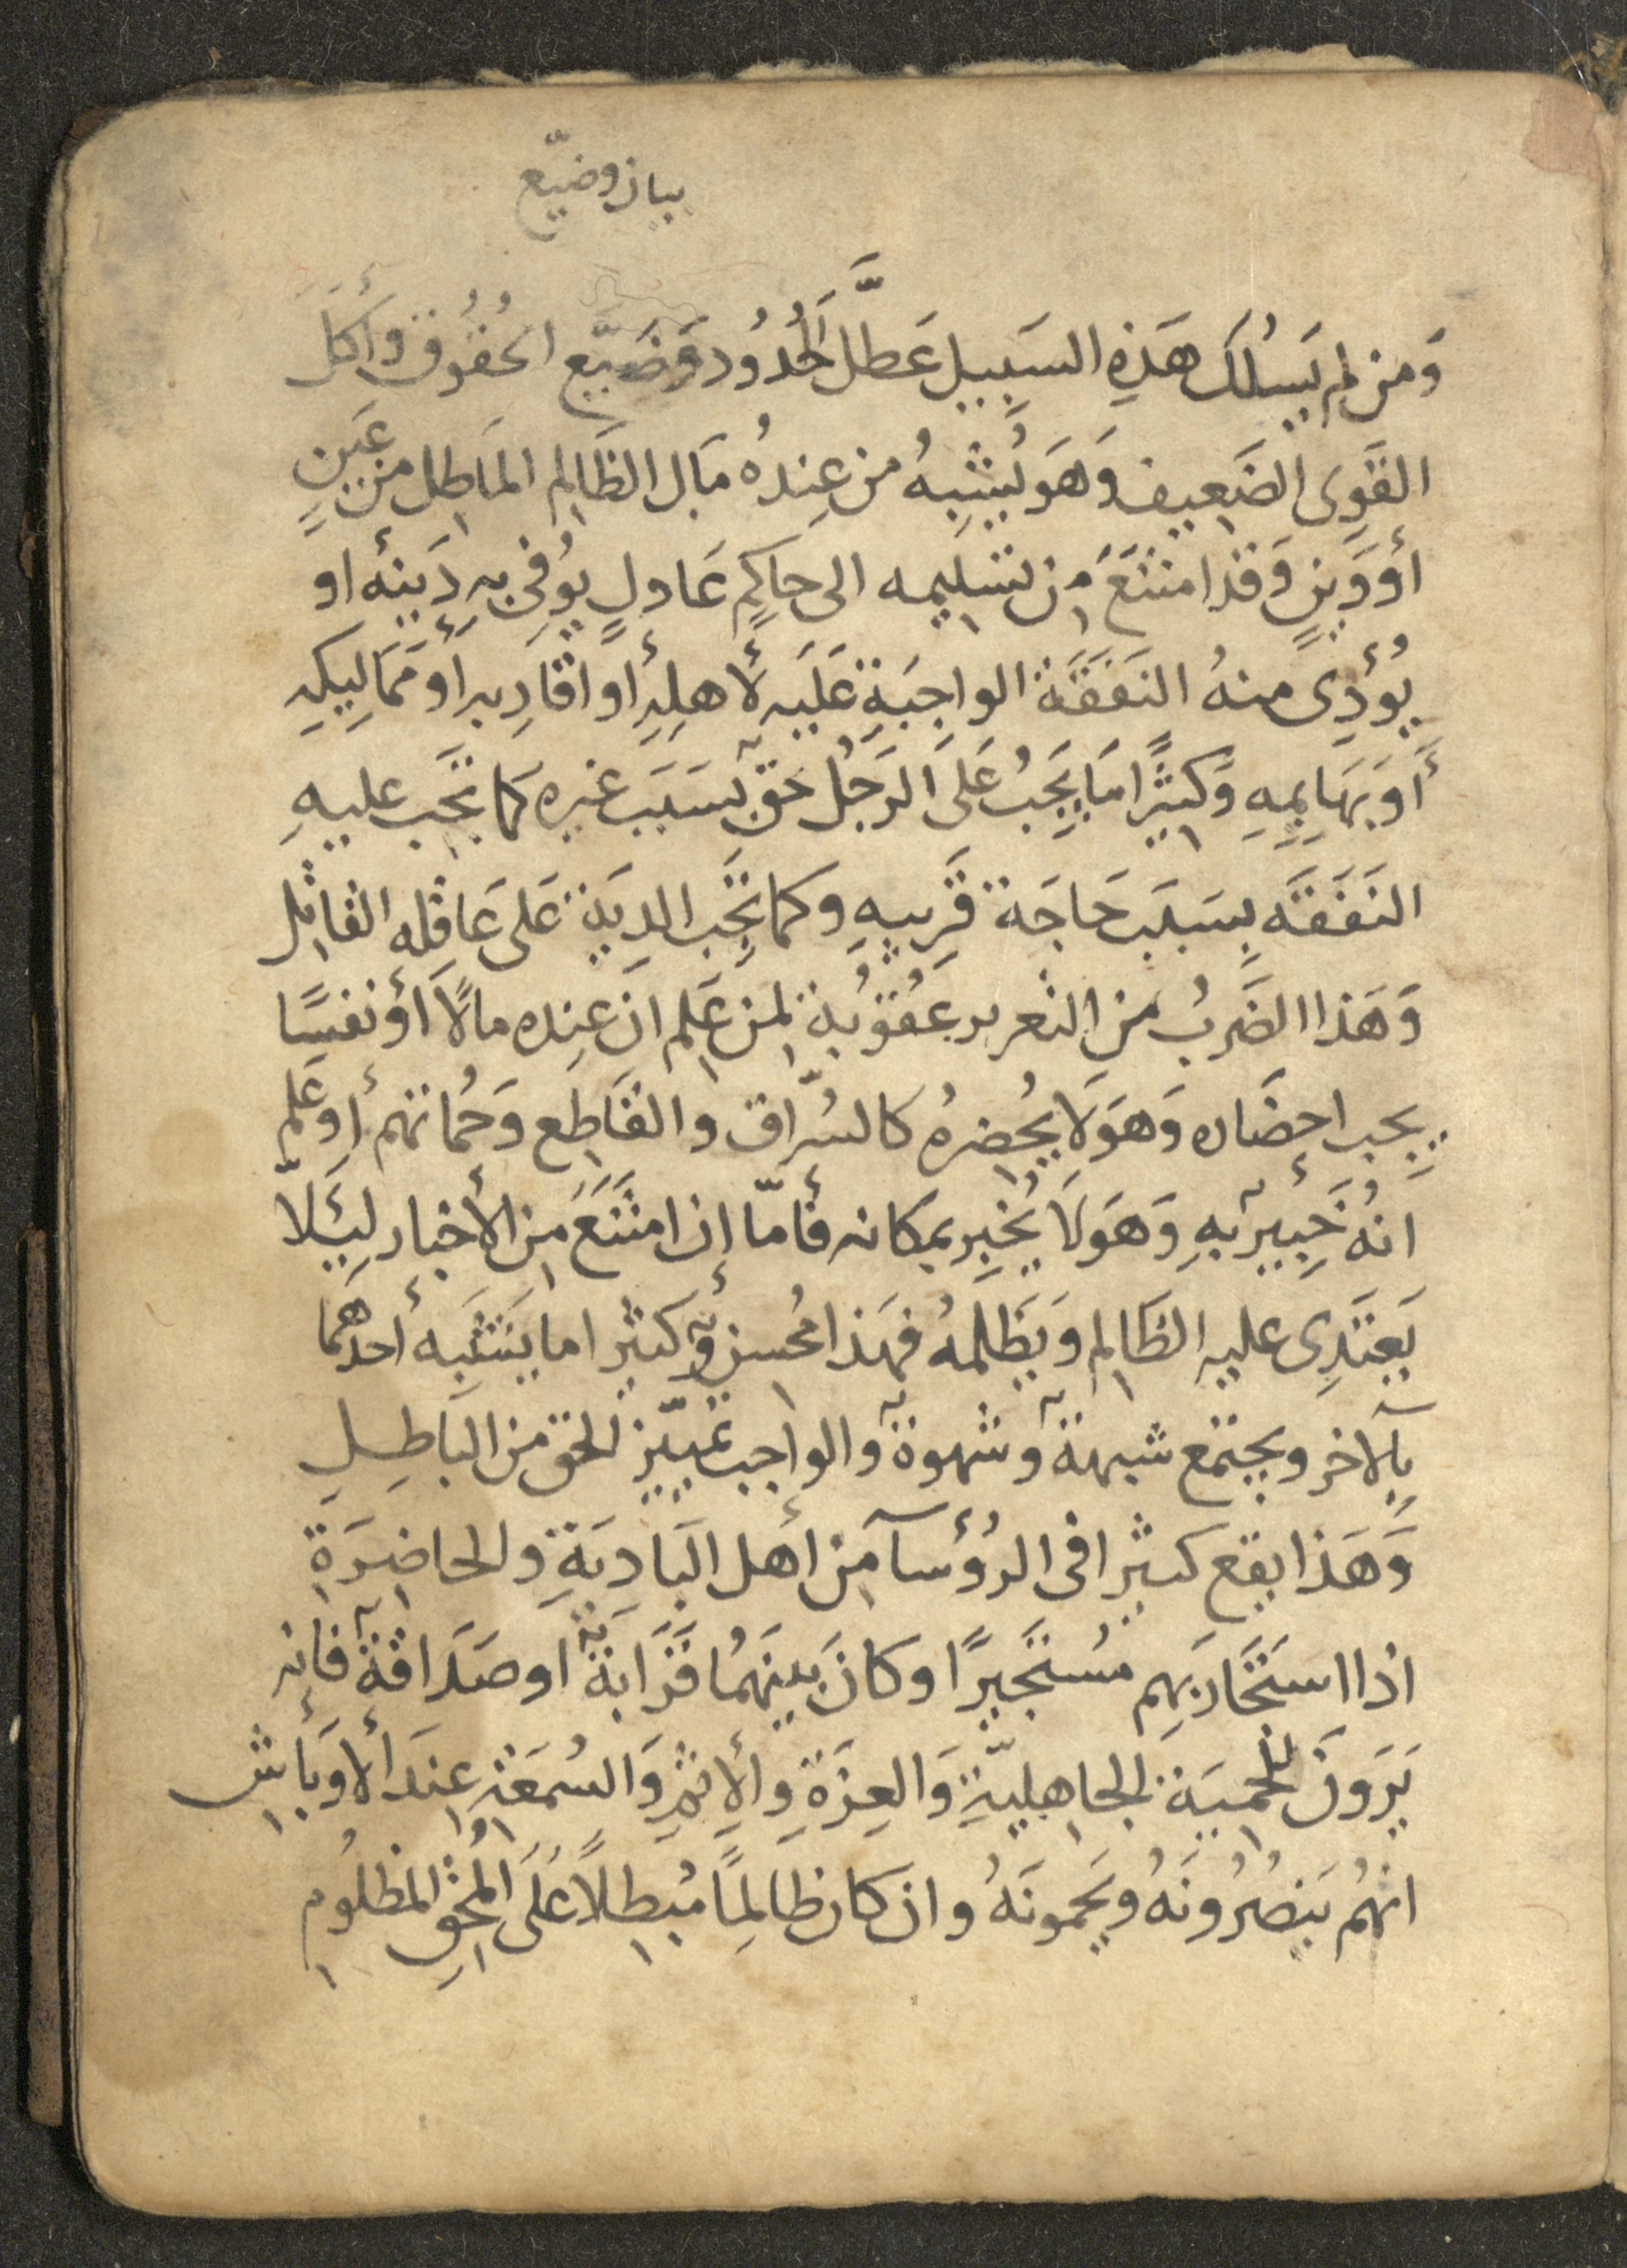 بيان وضيّع
وَمن لم يَسلُك هَذِهِ السَبِيل عَطَّلَ الحُدُود وَضَيّع الحُقُوق وأكَلَ
القَوِي الضَعِيف وَهَوَ يُشبِهُ من عِندهُ مَال الظَالِم المَاطِل من عَينٍ
أو دَينٍ وَقد امتَنَعَ مِن تسليمه الى حاكِمٍ عَادلٍ يوُفِى بهِ دَينهُ او
يُؤدِى منهُ النَفَقَة الواجِبَةِ عَلَيهِ لأهلِهِ أو اقارِبهِ أو مَمَالِيكِهِ
أو بَهَايِمِهِ وَكثيرًا مَا يَجِبُ عَلَى الرَجُل حَقٌ بسَبَب غيره كما تَجب عليهِ
النَفَقَة بِسَبَب حَاجَة قَرِيبِهِ وكما تَجِب الدِيَة عَلَى عَاقِله القاتِل
وَهَذا الضَربُ مِن التعرير عَقُوُبة لمن عَلِم ان عِنده مالاً أو نفسًا
يجب احضَاره وَهوَ لَا يُحضِرهُ كالسُرّاق والقَاطِع وَحُماتهم أو عَلِمَ
انهُ خَبِيرٌ بهِ وَهوَ لَا يُخبِر بمكانه فأمّا إن امتَنَعَ مِن الأخبار لِيَلّا
يَعتَدِى عليه الظَالِم ويَظلمهُ فهَذا مُحسِنٌ وكثيرا ما يَشتَبه أحدهما
بالآخر ويجتمع شبهةٌ وشهوةٌ والواجب تميّيز الحق من البَاطِل
وَهَذا يقع كثيرا فى الرُؤسآ مِن أهل البَادِيَةِ والحاضِرَةِ
اذا استَجَار بَهِم مُستَجِيرًا وكانَ بَينهمُا قَرَابةٌ او صَدَاقةٌ فأنه
يَرَونَ الحميَة الجاهليّةِ وَالعِزَةِ والأثمِ وَالسُمعَةِ عِندَ ألاوبَاش
انهُم يَنصُرُونَهُ ويَحمونَهُ وان كان ظالِمًا مُبطِلاً عَلَى المُحِق المظلُوم